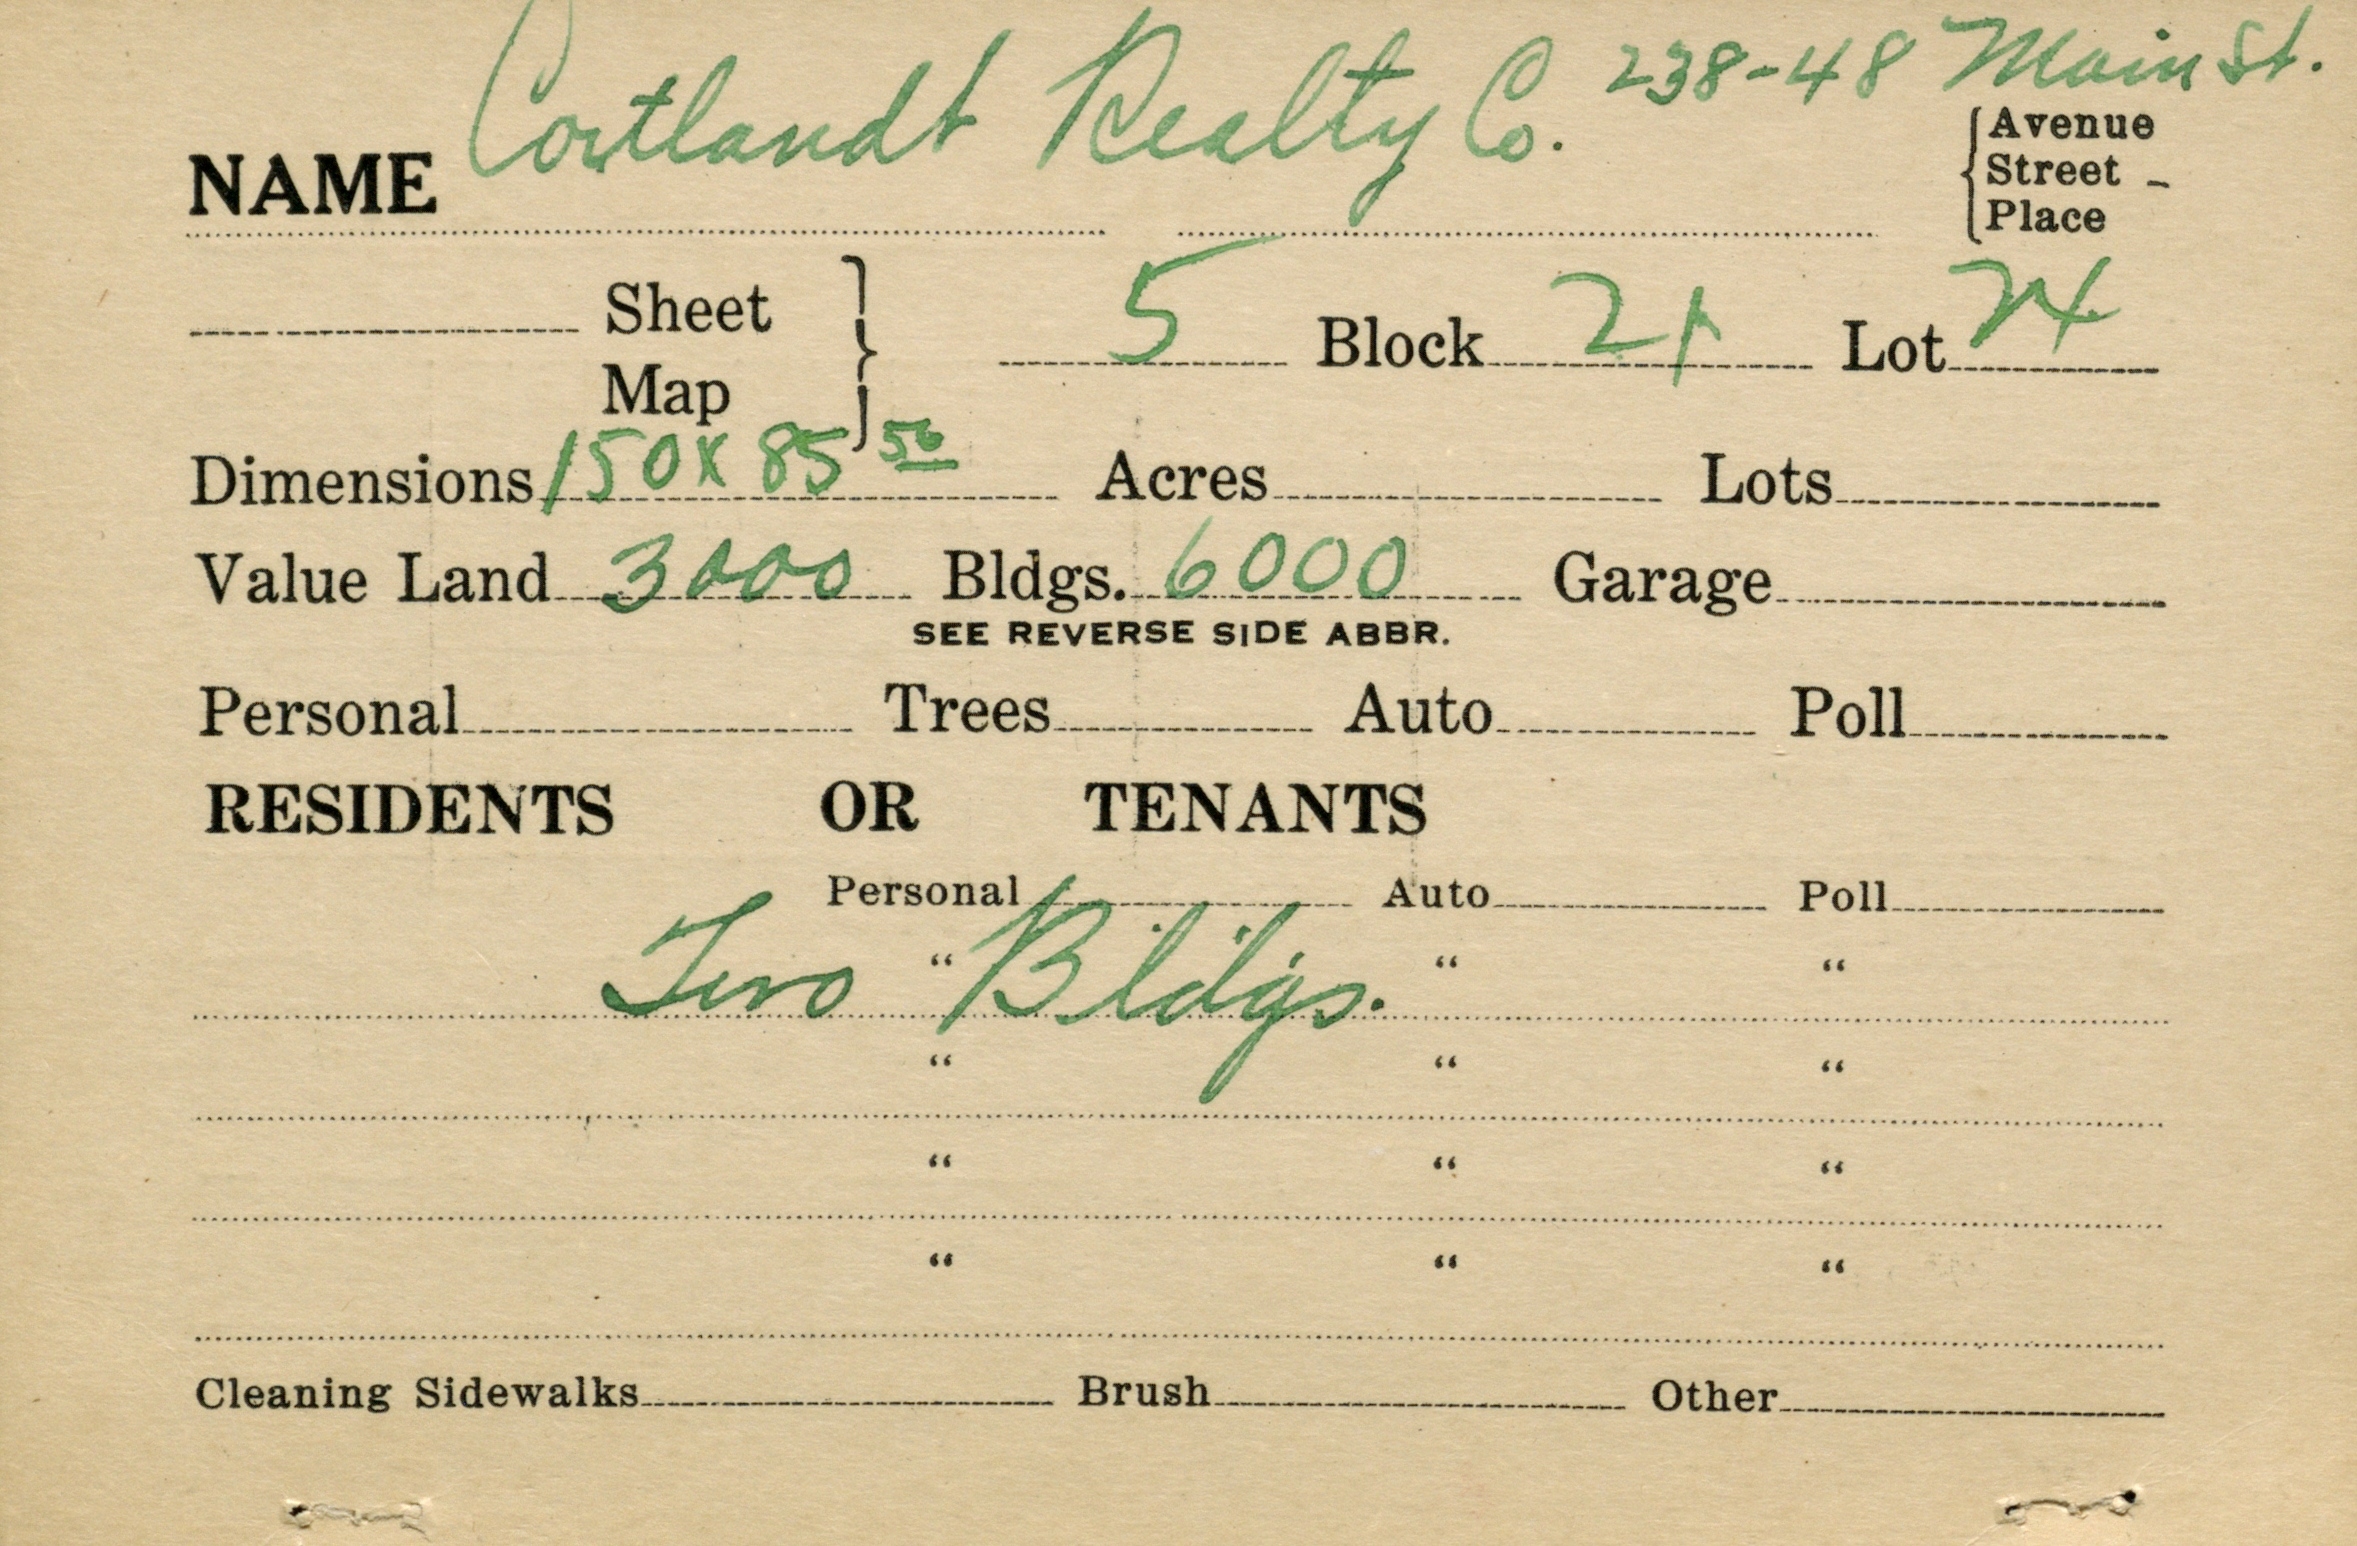 Cortlandt Realty Co. 238-48 Main St.
NAME { Avenue
Street -
Place
Sheet
Map } 5 Block Lot
Dimensions 150 x 85 56 Acres Lots
Value Land 3000 Bldgs. 6000 Garage
SEE REVERSE SIDE ABBR.
Personal Trees Auto Poll
RESIDENTS OR TENANTS
Personal Auto Poll
Two “ Bldgs. “ “
“ “ “
“ “ “
“ “ “
Cleaning Sidewalks Brush Other